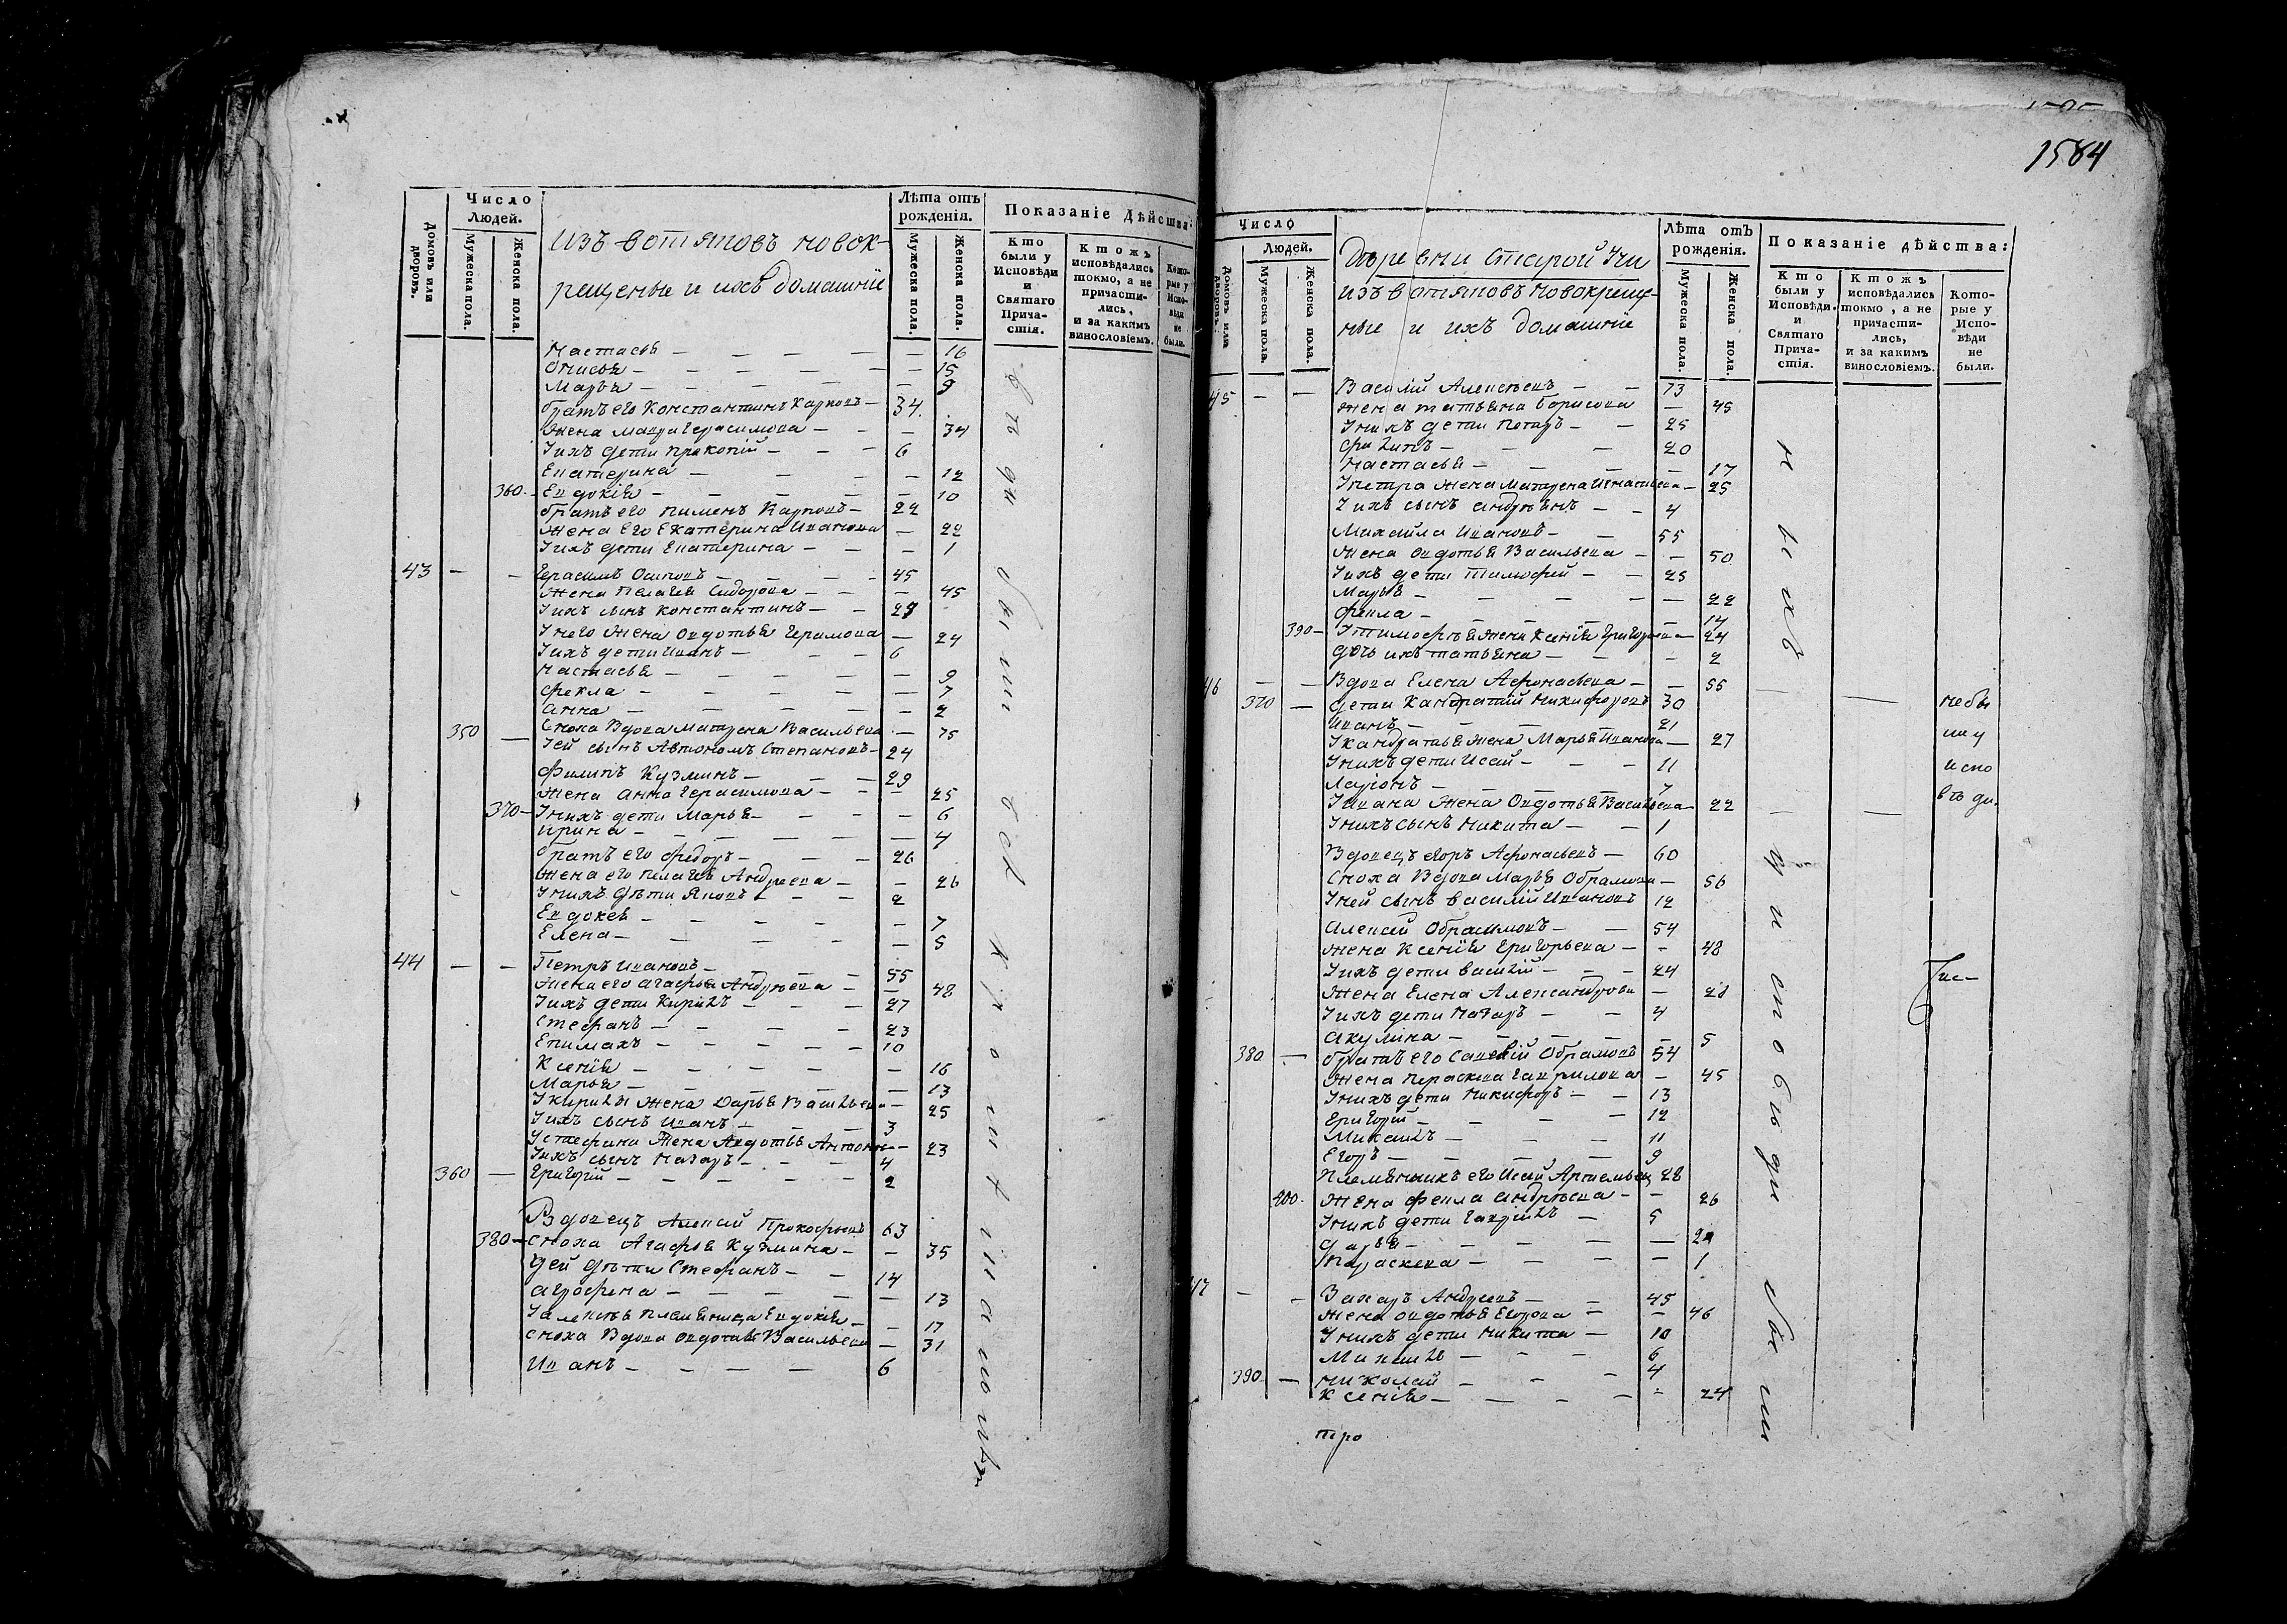 Число
Людей.
Домовъ или дворовъ.
Мужеска пола.
Женска пола.
Изъ вотяковъ новок-
рещеные и ихъ домашніе
Лѣта отъ рожденія.
Мужеска пола.
Женска пола.
Показаніе Дѣйства:
Кто были у Исповѣди и Святаго Прича-стія.
Кто жъ исповѣдались токмо, а не причасти-лись, и за какимъ винословіемъ.
Кото-рые у Испо-вѣди не были.
Настасья — 16
Онисья — 15
Марья — 9
братъ его Константинъ Карповъ — 34
Жена Мавра Герасимова — 34
Уихъ дети Прокопій — 6
Екатерина — 12
360 — Евдокія — 10
братъ его Пименъ Карповъ — 22
Жена его Екатерина Иванова — 22
Уихъ дети Екатерина — 1
43 — — Герасимъ Осиповъ — 45
Жена Пелагея Сидорова — 45
Уихъ сынъ Константинъ —
Унего Жена Овдотья — 24
Уихъ дети Иванъ — 6
Настасья — 9
Фекла — 7
Анна — 2
350 — Сноха Вдова Матрена Васильева — 75
Уей сынъ Автономъ Степановъ — 24
Филипъ Кузминъ — 29
Жена Анна Герасимова — 25
370 — Унихъ дети Марья — 6
Ирина — 4
братъ его Федоръ — 26
Жена его Пелагея Андреева — 26
Унихъ дѣти Яковъ — 2
Евдокея — 7
Елена — 5
44 — — Петръ Ивановъ — 55
Жена его Агафья Андреева — 48
Уихъ дети Кирилъ — 27
Стефанъ — 23
Епимахъ — 10
Ксенія — 16
Марья — 13
Укирилы Жена Дарья Васильева — 25
Уихъ сынъ Иванъ — 3
Устефана Жена Авдотья — 23
Уихъ сынъ Назаръ — 4
360 — Григорій — 2
Вдовецъ Алексей Прокофьевъ 63
380 — Сноха Агафья Кузмина — 35
Уей дѣти Стефанъ — 14
Агрофена — 13
племяница Евдокія — 17
Сноха Вдова Овдотья Васильева — 31
Иванъ — 6
1584
Число
Людей.
Домовъ или дворовъ.
Мужеска пола.
Женска пола.
Деревни Старой Учи
изъ вотяковъ новокреще-
ные и ихъ домашніе
Лѣта отъ рожденія.
Мужеска пола.
Женска пола.
Показаніе дѣйства:
Кто были у Исповѣди. и Святаго Прича-стія.
Кто жъ исповѣдались токмо, а не причасти-лись, и за какимъ винословіемъ.
Кото-рые у Испо-вѣди не были.
45 — — Василій Алексеевъ — 73
Жена татьяна борисова — 45
Унихъ дети Петръ — 25
Филипъ — 20
Настасья — 17
Упетра Жена Матрена Игнатьева — 25
Уихъ сынъ Андреянъ — 4
Михайла Ивановъ — 55
Жена Овдотья Васильева — 50
Уихъ дети Тимофей — 25
Марья — 22
Фекла — 14
390 — Утимофея Жена Ксенія Григорьева — 24
дочь ихъ татьяна — 2
46 — — Вдова Елена Афонасьева — 55
370 — дети Кандратій Никифоровъ 30
Иванъ — 21
Укандратья Жена Марья Иванова — 27
Унихъ дети Исай — 11
Ларіонъ — 7
Уивана Жена Овдотья Васильева — 22
Унихъ сынъ Никита — 1
Вдовецъ егоръ Афонасьевъ — 60
Сноха Вдова Марья Обрамова — 56
Уней сынъ Василій Ивановъ 12
Алексей — 54
Жена Ксенія Григорьева — 48
Уихъ дети Василій — 24
Жена Елена Александрова —
Уихъ дети Назаръ — 4
Акулина — 5
380 — братъ его Савелій Обрамовъ 54
Жена Пераскева Гаврилова — 45
Унихъ дети Никифоръ — 13
Григорій — 12
Михаилъ — 11
Егоръ — 9
Племянникъ его Исай 28
400 Жена Фекла Андреева — 26
Унихъ дети Гаврилъ — 5
Дарья —
Параскева — 1
47 — — Захаръ Андреевъ — 45
Жена Овдотья Егорова — 46
Унихъ дети Никита — 10
Михаилъ — 6
390 — Николай — 4
Ксенія — 24
не бы
ли у
испо
вѣди.
тро